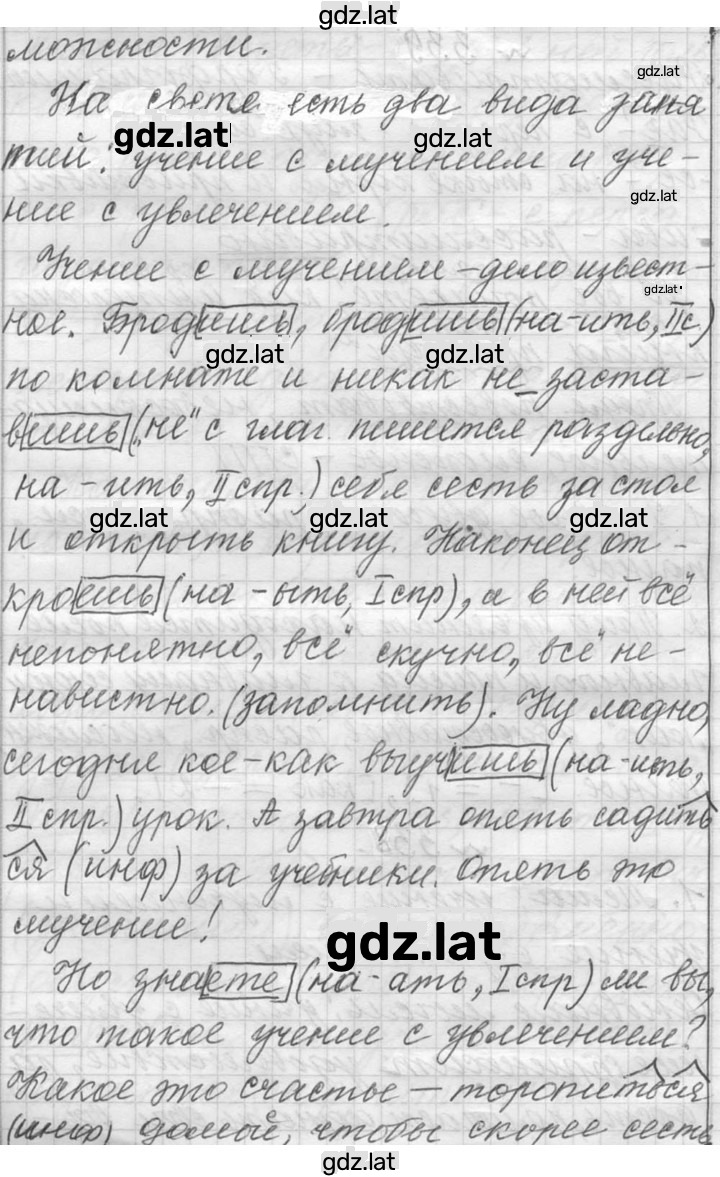 gdz.lat
можности.
gdz.lat
На свете есть два вида заня
gdz.lat gdz.lat
тий: учение с мучением и уче-
gdz.lat
ние с увлечением.
Учение с мучением - дело извест-
gdz.lat
ное. Бродишь, бродишь (на-ить, II с.)
gdz.lat gdz.lat
по комнате и никак не заста-
вишь („не" с глаг. пишется раздельно,
на -ить, II спр.) себя сесть за стол
gdz.lat gdz.lat gdz.lat
и открыть книгу. Наконец от-
кроешь (на -ыть, I спр), а в ней всё
непонятно, всё скучно, всё не-
навистно. (запомнить). Ну ладно,
сегодня кое-как выучишь (на-ить,
II спр.) урок. А завтра опять садить
ся (инф) за учебники. Опять это
мучение!
gdz.lat
Но знаете (на-ать, I спр) ли вы,
что такое учение с увлечением?
Какое это счастье - торопиться
(инф) домой, чтобы скорее сесть
gdz.lat